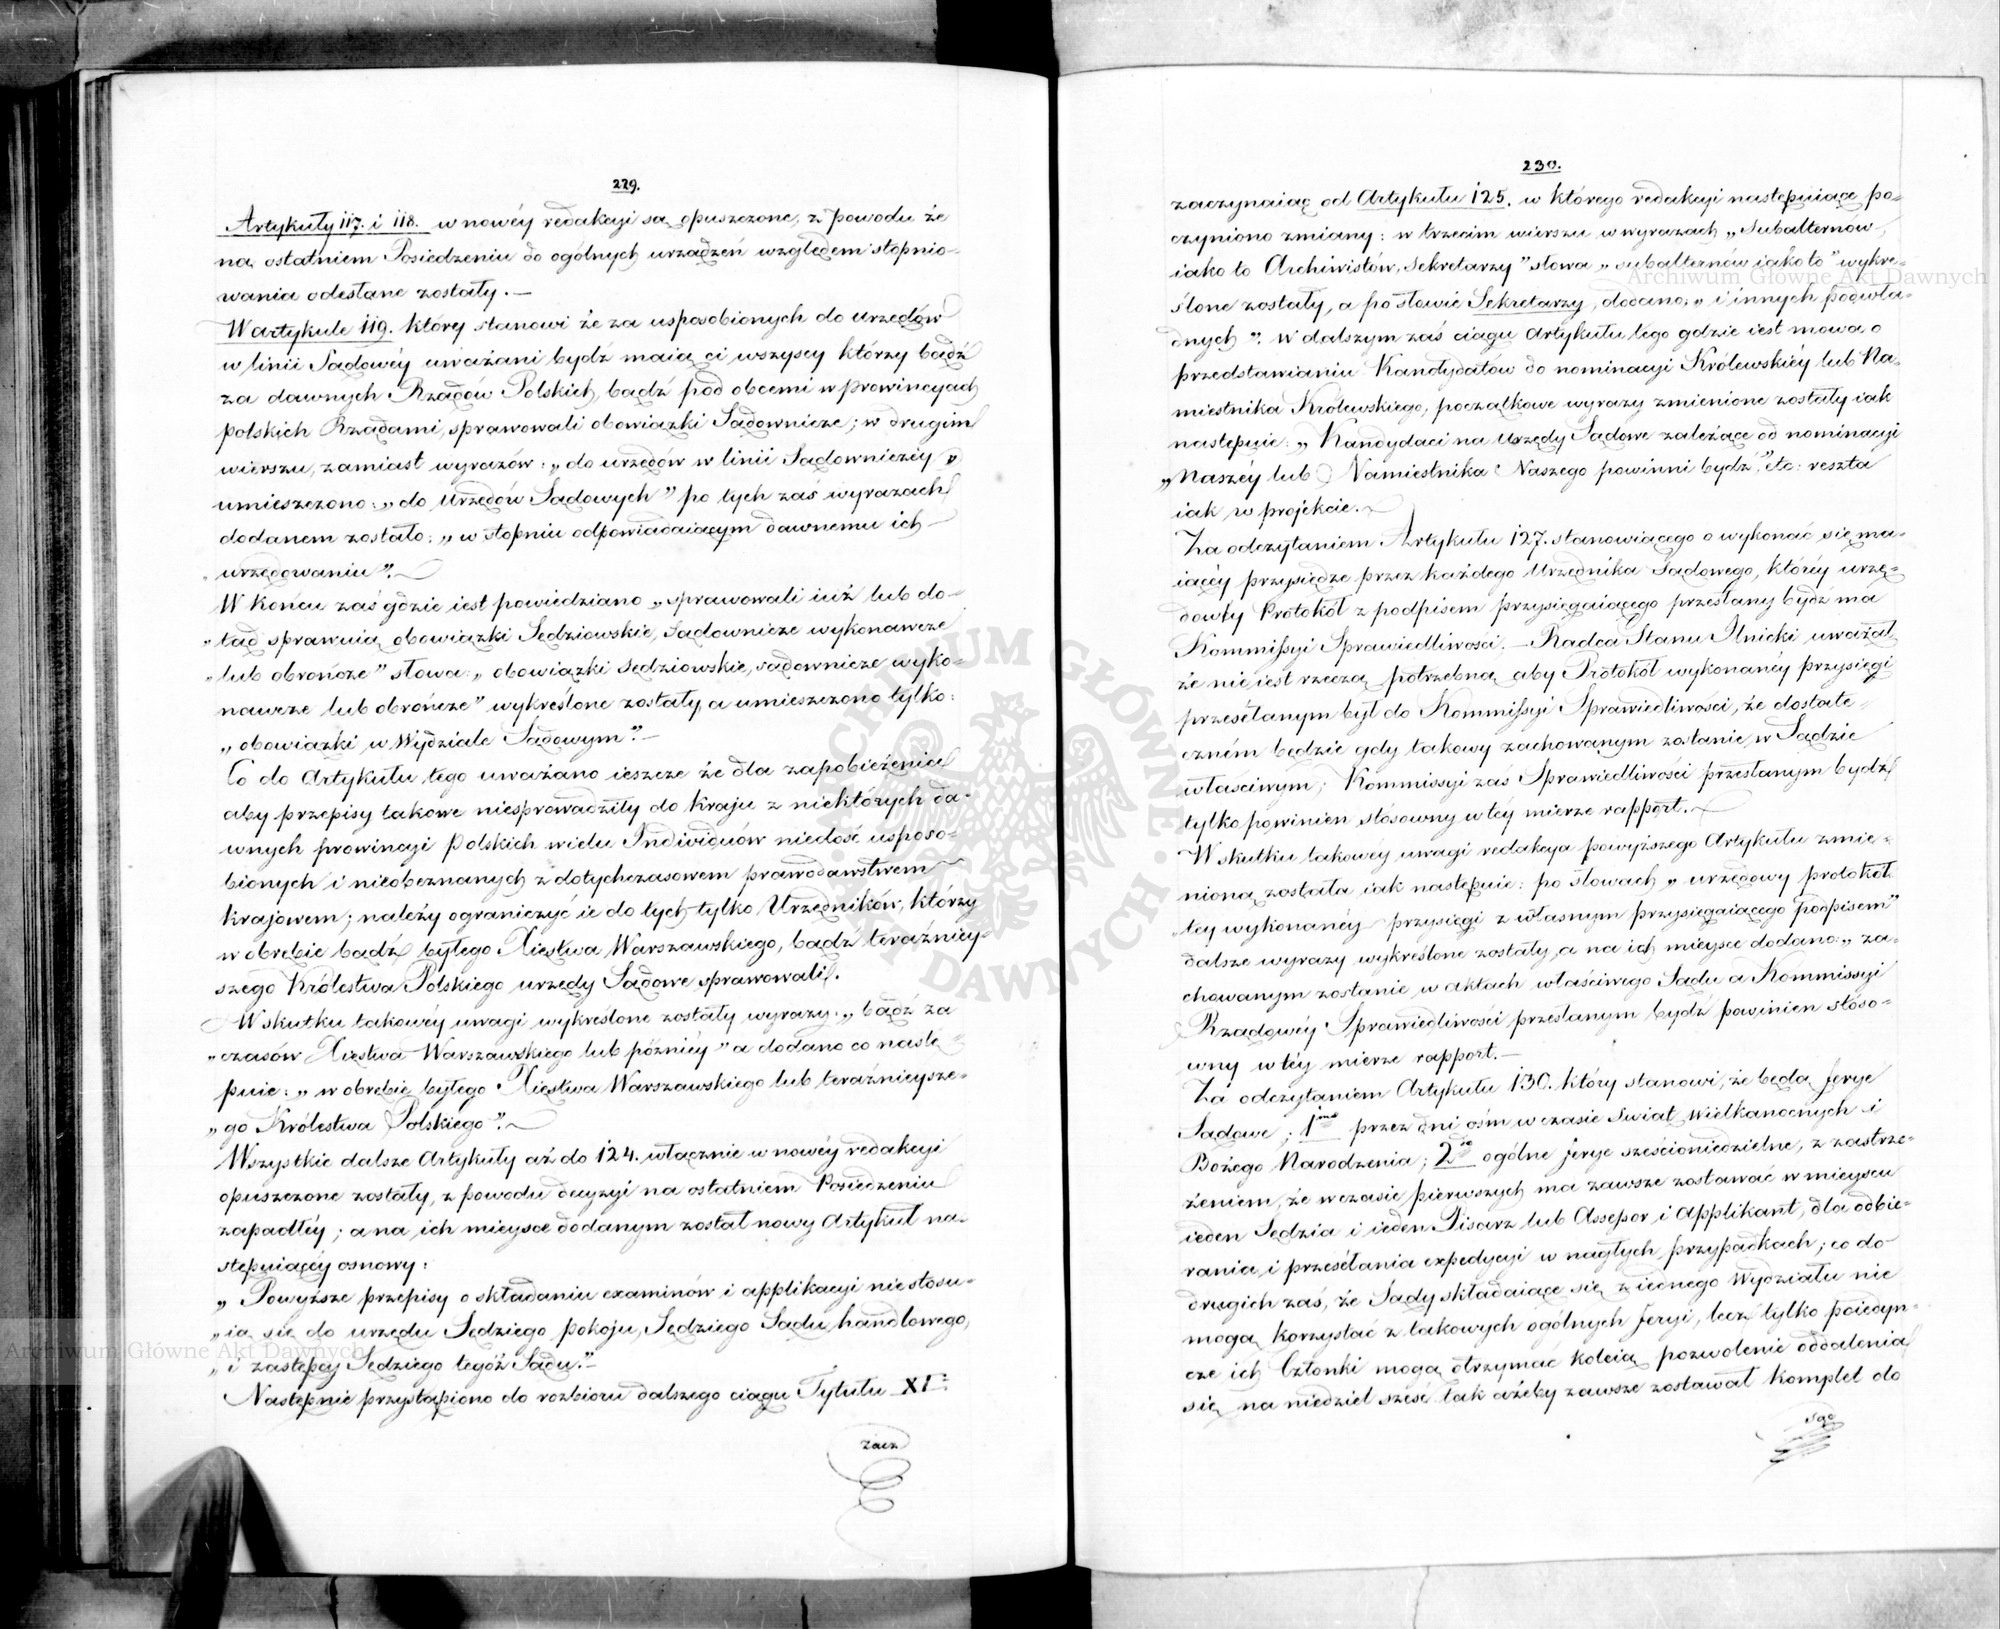 229.
Artykuły 117. i 118. w nowéy redakcyi są opuszczone, z powodu że
na ostatniem Posiedzeniu do ogólnych urządzeń względem stopnio-
wania odesłane zostały. —
W artykule 119. który stanowi że za usposobionych do urzędów
w linii Sądowéy uważani bydź maią ci wszyscy którzy bądź
za dawnych Rządów Polskich, bądź pod obcemi w prowincyach
polskich Rządami, sprawowali obowiązki Sądownicze; w drugim
wierszu, zamiast wyrazów: „do urzędów w linii Sądowniczéy"
umieszczono: „do Urzędów Sądowych" po tych zaś wyrazach
dodanem zostało: „w stopniu odpowiadaiącym dawnemu ich
urzędowaniu".
W końcu zaś gdzie iest powiedziano „sprawowali iuż lub do-
„tąd sprawuią obowiązki Sędziowskie, Sądownicze wykonawcze
„lub obrończe" słowa: „obowiązki sędziowskie, sądownicze wyko-
nawcze lub obrończe" wykreślone zostały, a umieszczono tylko:
„obowiązki w Wydziale Sądowym". —
Co do Artykułu tego uważano ieszcze że dla zapobieżenia
aby przepisy takowe niesprowadziły do kraju z niektórych da-
wnych prowincyi polskich wielu Individuów niedość usposo-
bionych i nieobeznanych z dotychczasowem prawodawstwem
krajowem; należy ograniczyć ie do tych tylko Urzędników, którzy
w obrębie bądź byłego Xięstwa Warszawskiego, bądź teraźniey-
szego Królestwa Polskiego urzędy Sądowe sprawowali.
W skutku takowéy uwagi wykreślone zostały wyrazy: „bądź za
„czasów Xięstwa Warszawskiego lub późniéy" a dodano co nastę-
puie: „w obrębie byłego Xięstwa Warszawskiego lub teraźnieysze-
„go Królestwa Polskiego".
Wszystkie dalsze Artykuły aż do 124. włącznie w nowéy redakcyi
opuszczone zostały, z powodu decyzyi na ostatniem Posiedzeniu
zapadłéy; a na ich mieysce dodanym został nowy Artykuł na-
stępuiącéy osnowy:
„Powyższe przepisy o składaniu examinów i applikacyi niestosu-
„ią się do urzędu Sędziego pokoju, Sędziego Sądu handlowego,
„i zastępcy Sędziego tegóż Sądu." —
Następnie przystąpiono do rozbioru dalszego ciągu Tytułu XI
zacz
230.
zaczynaiąc od Artykułu 125. w którego redakcyi następuiące po-
czyniono zmiany: w trzecim wierszu w wyrazach „Subalternów,
iako to Archiwistów, Sekretarzy" słowa „subalternów iako to" wykre-
ślone zostały, a po słowie Sekretarzy, dodano: „i innych podwła-
dnych". W dalszym zaś ciągu Artykułu tego gdzie iest mowa o
przedstawianiu Kandydatów do nominacyi Królewskiéy lub Na-
miestnika Królewskiego, początkowe wyrazy zmienione zostały iak
następuie: „Kandydaci na Urzędy Sądowe zależące od nominacyi
„Naszéy lub Namiestnika Naszego powinni bydź", etc: reszta
iak w projekcie.
Za odczytaniem Artykułu 127. stanowiącego o wykonać się ma-
iącéy przysiędze przez każdego Urzędnika Sądowego, któréy urzę-
dowy Protokół z podpisem przysięgaiącego przesłany bydź ma
Kommissyi Sprawiedliwości. — Radca Stanu Ilnicki uważał
że nie iest rzeczą potrzebną aby Protokół wykonanéy przysięgi
przesełanym był do Kommissyi Sprawiedliwości, że dostate-
czném będzie gdy takowy zachowanym zostanie w Sądzie
właściwym; Kommissyi zaś Sprawiedliwości przesłanym bydź
tylko powinien stósowny w téy mierze rapport.
W skutku takowéy uwagi redakcya powyższego Artykułu zmie-
nioną została iak następuie: po słowach „urzędowy protokół
„téy wykonanéy przysięgi z własnym przysięgaiącego podpisem"
dalsze wyrazy wykreślone zostały, a na ich mieysce dodano: „za-
chowanym zostanie w aktach właściwego Sądu a Kommissyi
Rządowéy Sprawiedliwości przesłanym bydź powinien stóso-
wny w téy mierze rapport. —
Za odczytaniem Artykułu 130. który stanowi, że będą ferye
Sądowe; 1mo przez dni ośm w czasie Świąt Wielkanocnych i
Bożego Narodzenia; 2do ogólne ferye sześcioniedzielne, z zastrze-
żeniem, że w czasie pierwszych ma zawsze zostawać w mieyscu
ieden Sędzia i ieden Pisarz lub Assesor i Applikant, dla odbie-
rania i przesełania expedycyi w nagłych przypadkach; co do
drugich zaś, że Sądy składaiące się z iednego Wydziału nie
mogą korzystać z takowych ogólnych feryi, lecz tylko poiedyn-
cze ich Członki mogą otrzymać koleią pozwolenie oddalenia
się na niedziel sześć tak ażeby zawsze zostawał komplet do
Są
Archiwum Główne Akt Dawnych
Archiwum Główne Akt Dawnych
ARCHIWUM GŁÓWNE AKT DAWNYCH